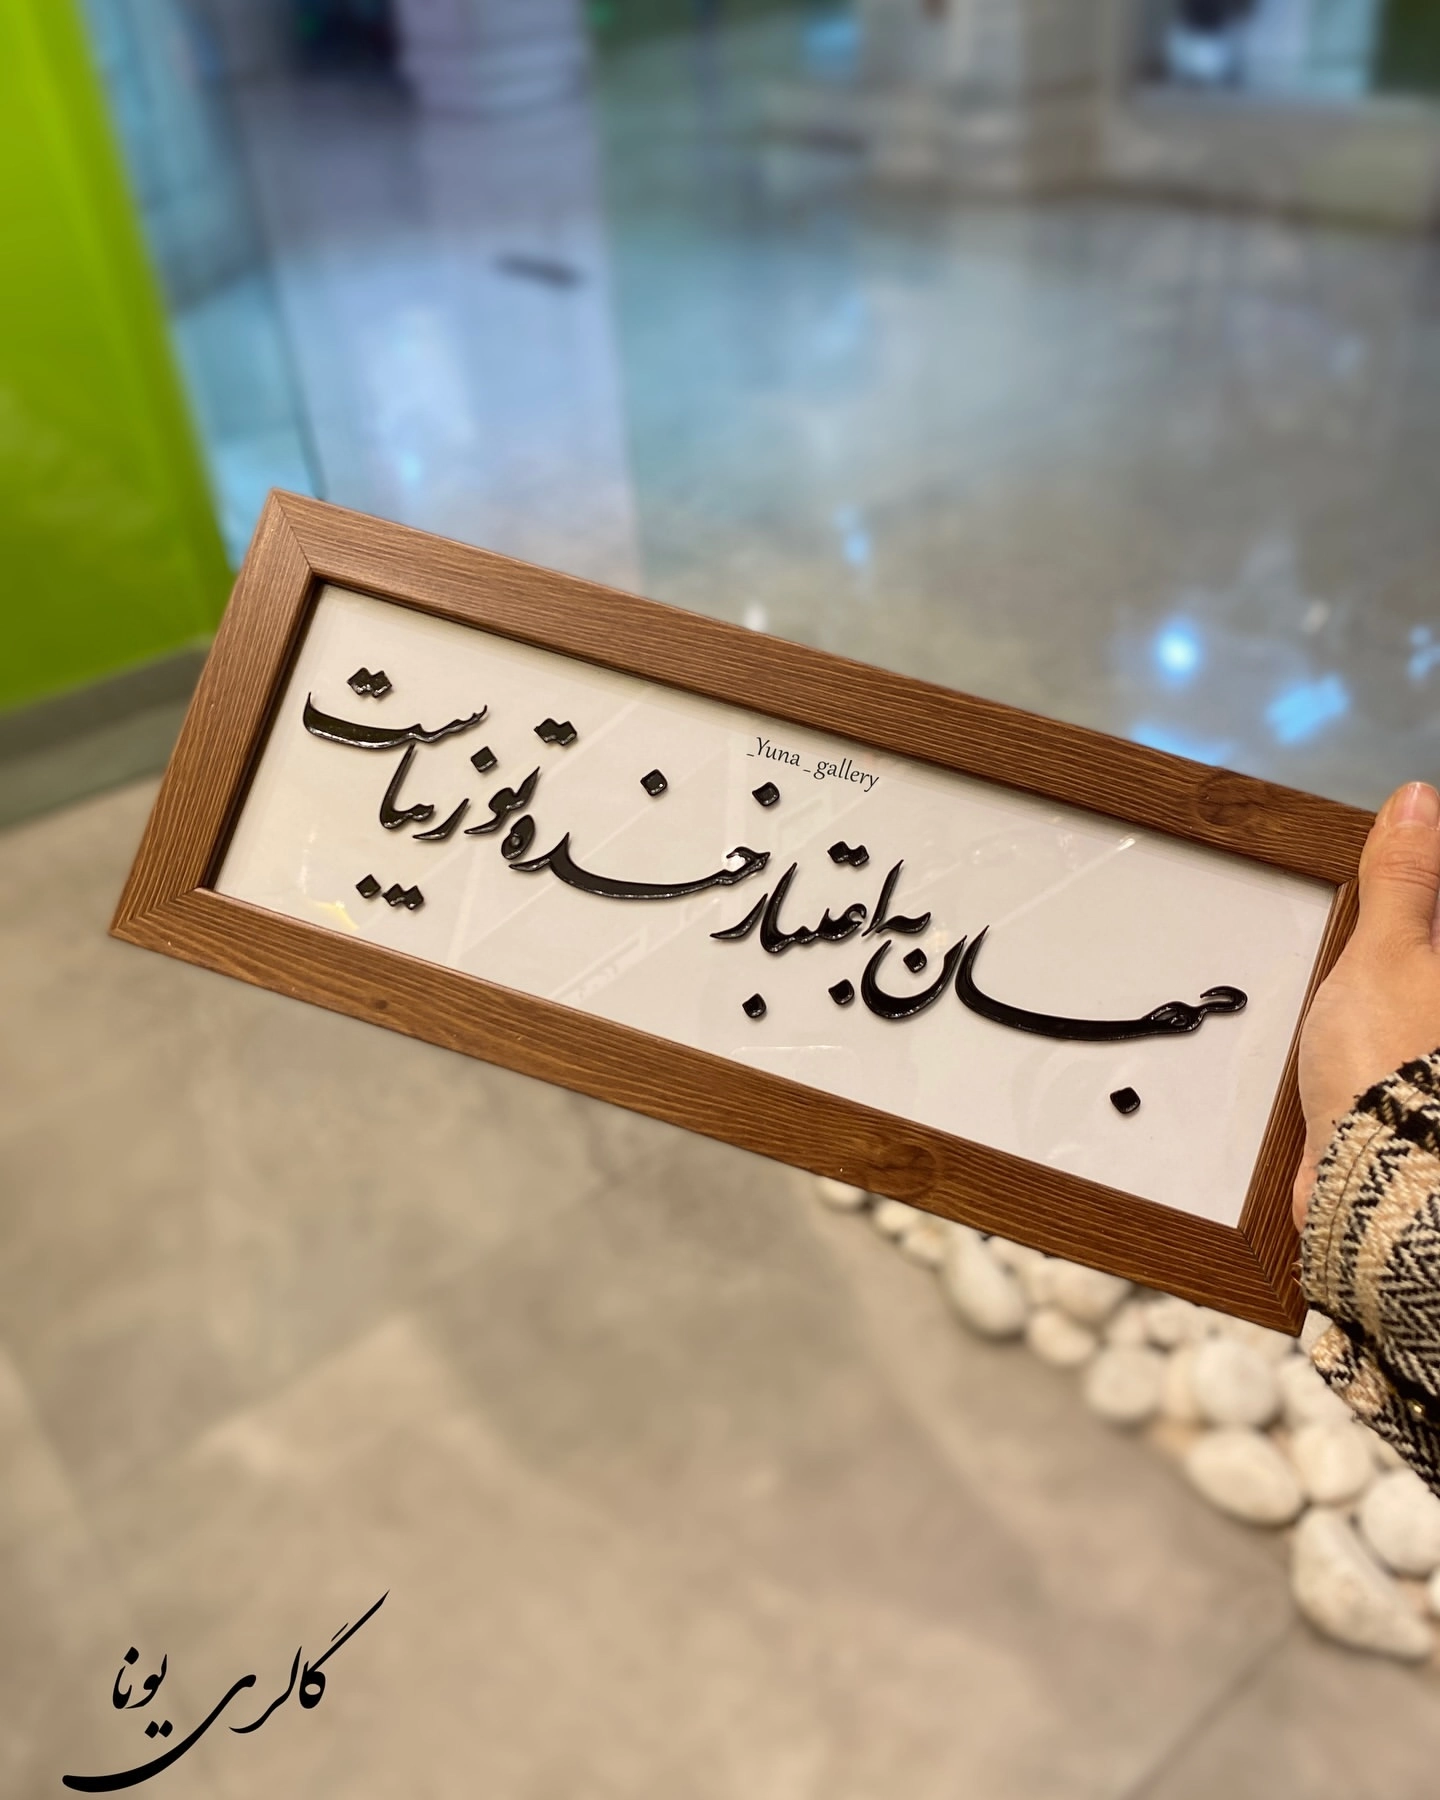 _Yuna_gallery
جهان به اعتبار خنده تو زیباست
گالری یونا